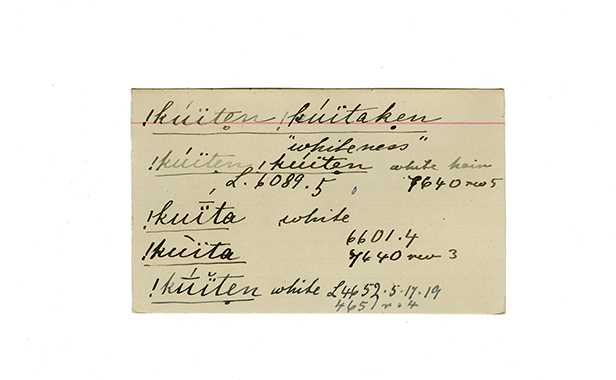 !kúïten̥ !kúïtaken̥
"whiteness"
!kúïten̥ !kúïten̥ white hair
L. 6089.5 7640 rev 5
!kuïta white
6601.4
!kúïta 7640 rev 3
!kúïten̥ white L4652.5.17.19
4651 r. 4